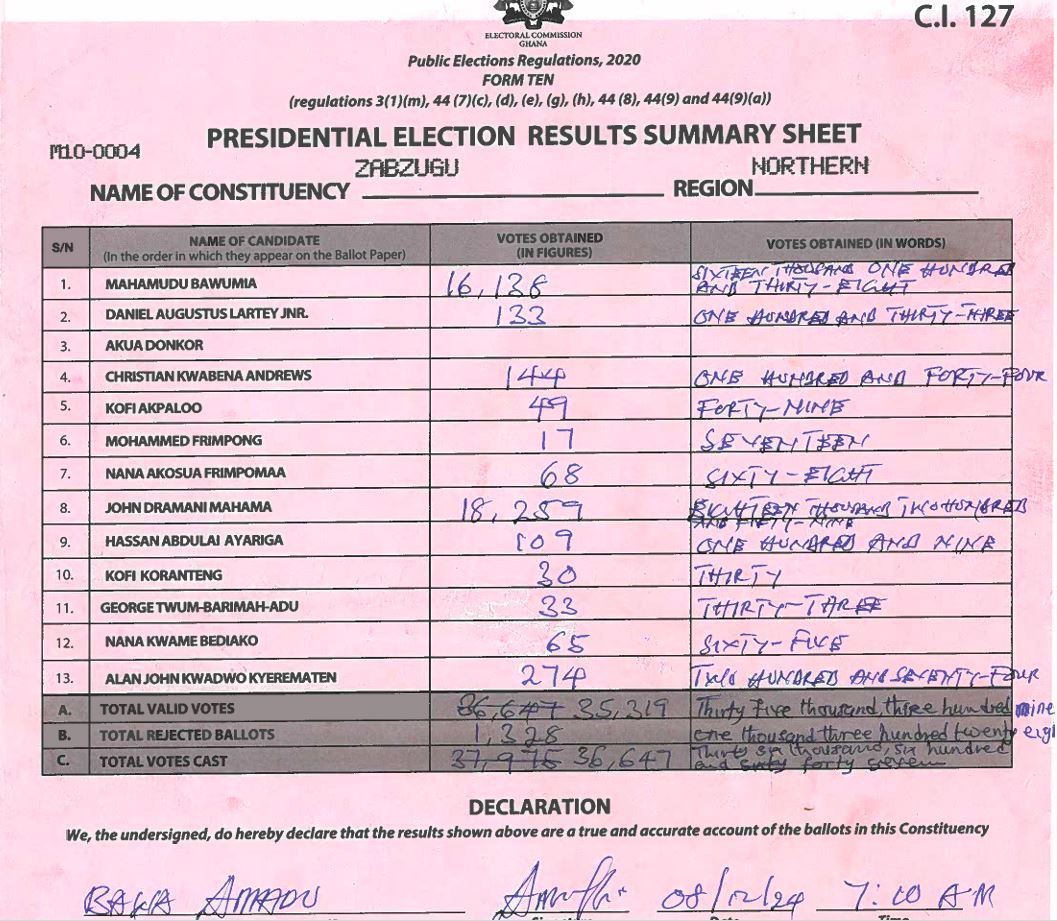 C.I. 127
ELECTORAL COMMISSION
GHANA
Public Elections Regulations, 2020
FORM TEN
(regulations 3(1)(m), 44 (7)(c), (d), (e), (g), (h), 44 (8), 44(9) and 44(9)(a))
PRESIDENTIAL ELECTION RESULTS SUMMARY SHEET
M10-0004
ZABZUGU NORTHERN
NAME OF CONSTITUENCY REGION
S/N NAME OF CANDIDATE (In the order in which they appear on the Ballot Paper) VOTES OBTAINED (IN FIGURES) VOTES OBTAINED (IN WORDS)
1. MAHAMUDU BAWUMIA 16,138 SIXTEEN THOUSAND ONE HUNDRED AND THIRTY-EIGHT
2. DANIEL AUGUSTUS LARTEY JNR. 133 ONE HUNDRED AND THIRTY-THREE
3. AKUA DONKOR
4. CHRISTIAN KWABENA ANDREWS 144 ONE HUNDRED AND FORTY-FOUR
5. KOFI AKPALOO 49 FORTY-NINE
6. MOHAMMED FRIMPONG 17 SEVENTEEN
7. NANA AKOSUA FRIMPOMAA 68 SIXTY-EIGHT
8. JOHN DRAMANI MAHAMA 18,259 EIGHTEEN THOUSAND TWO HUNDRED AND FIFTY-NINE
9. HASSAN ABDULAI AYARIGA 109 ONE HUNDRED AND NINE
10. KOFI KORANTENG 30 THIRTY
11. GEORGE TWUM-BARIMAH-ADU 33 THIRTY-THREE
12. NANA KWAME BEDIAKO 65 SIXTY-FIVE
13. ALAN JOHN KWADWO KYEREMATEN 274 TWO HUNDRED AND SEVENTY-FOUR
A. TOTAL VALID VOTES 36,647 35,319 Thirty five thousand, three hundred nine
B. TOTAL REJECTED BALLOTS 1,328 one thousand three hundred twenty eigh
C. TOTAL VOTES CAST 37,975 36,647 Thirty six thousand, six hundred and sixty forty seven
DECLARATION
We, the undersigned, do hereby declare that the results shown above are a true and accurate account of the ballots in this Constituency
AMADU 08/12/24 7:10 AM